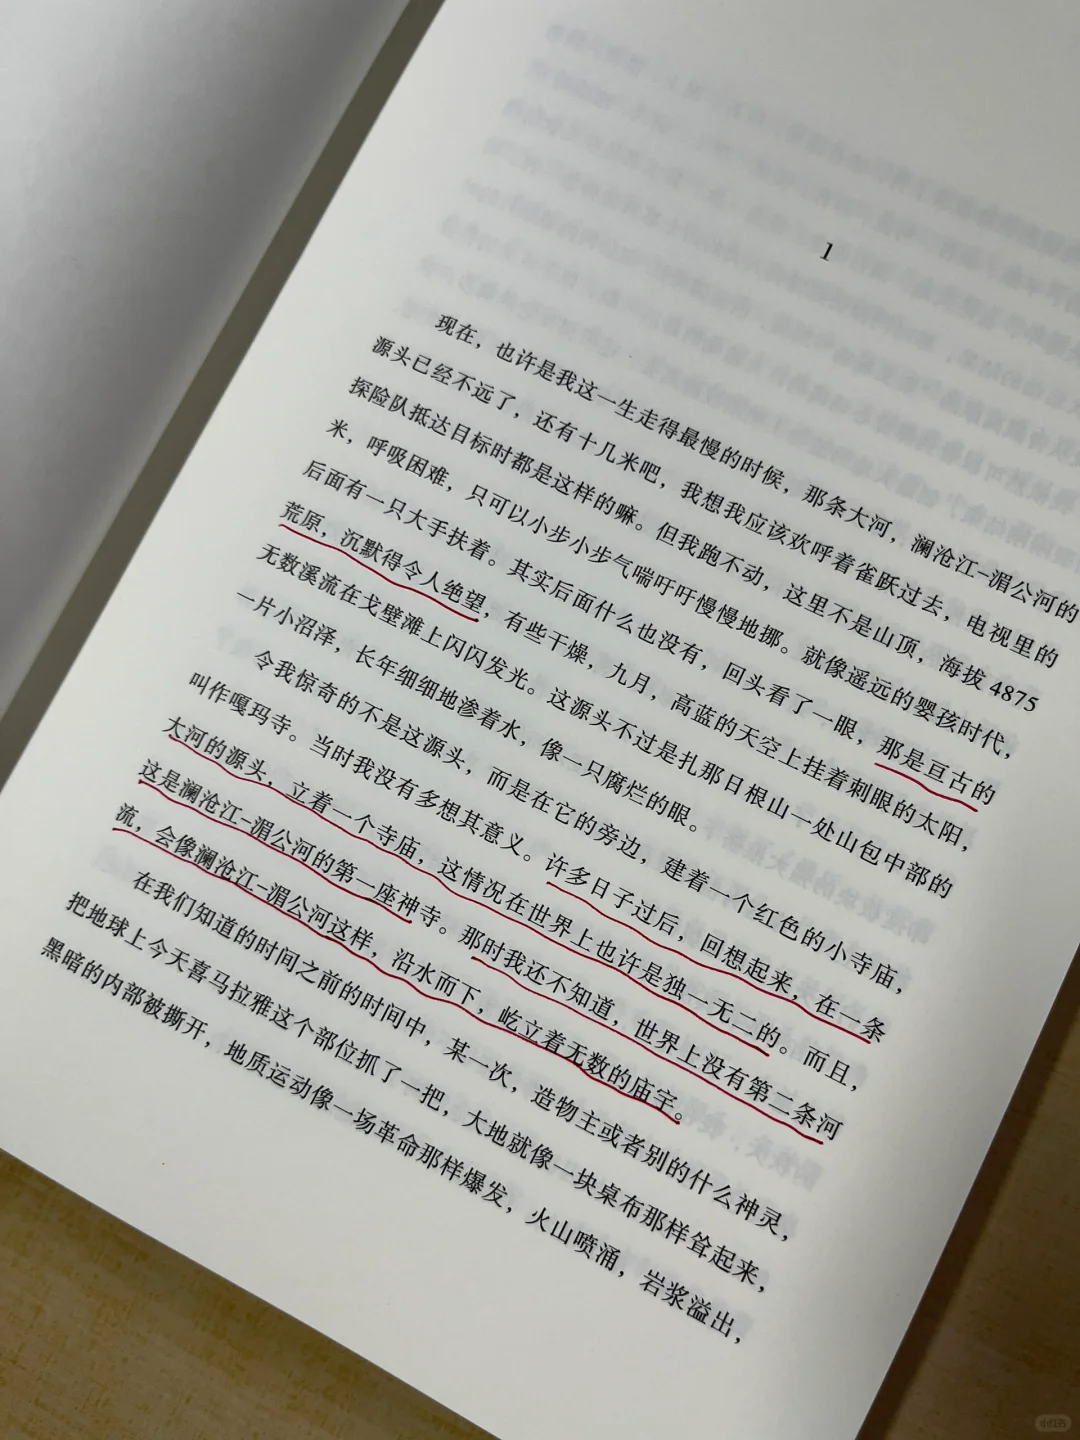 1
现在，也许是我这一生走得最慢的时候，那条大河，澜沧江-湄公河的
源头已经不远了，还有十几米吧，我想我应该欢呼着雀跃过去，电视里的
探险队抵达目标时都是这样的嘛。但我跑不动，这里不是山顶，海拔 4875
米，呼吸困难，只可以小步小步气喘吁吁慢慢地挪。就像遥远的婴孩时代，
后面有一只大手扶着。其实后面什么也没有，回头看了一眼，那是亘古的
荒原，沉默得令人绝望，有些干燥，九月，高蓝的天空上挂着刺眼的太阳，
无数溪流在戈壁滩上闪闪发光。这源头不过是扎那日根山一处山包中部的
一片小沼泽，长年细细地渗着水，像一只腐烂的眼。
令我惊奇的不是这源头，而是在它的旁边，建着一个红色的小寺庙，
叫作嘎玛寺。当时我没有多想其意义。许多日子过后，回想起来，在一条
大河的源头，立着一个寺庙，这情况在世界上也许是独一无二的。而且，
这是澜沧江-湄公河的第一座神寺。那时我还不知道，世界上没有第二条河
流，会像澜沧江-湄公河这样，沿水而下，屹立着无数的庙宇。
在我们知道的时间之前的时间中，某一次，造物主或者别的什么神灵，
把地球上今天喜马拉雅这个部位抓了一把，大地就像一块桌布那样耸起来，
黑暗的内部被撕开，地质运动像一场革命那样爆发，火山喷涌，岩浆溢出，